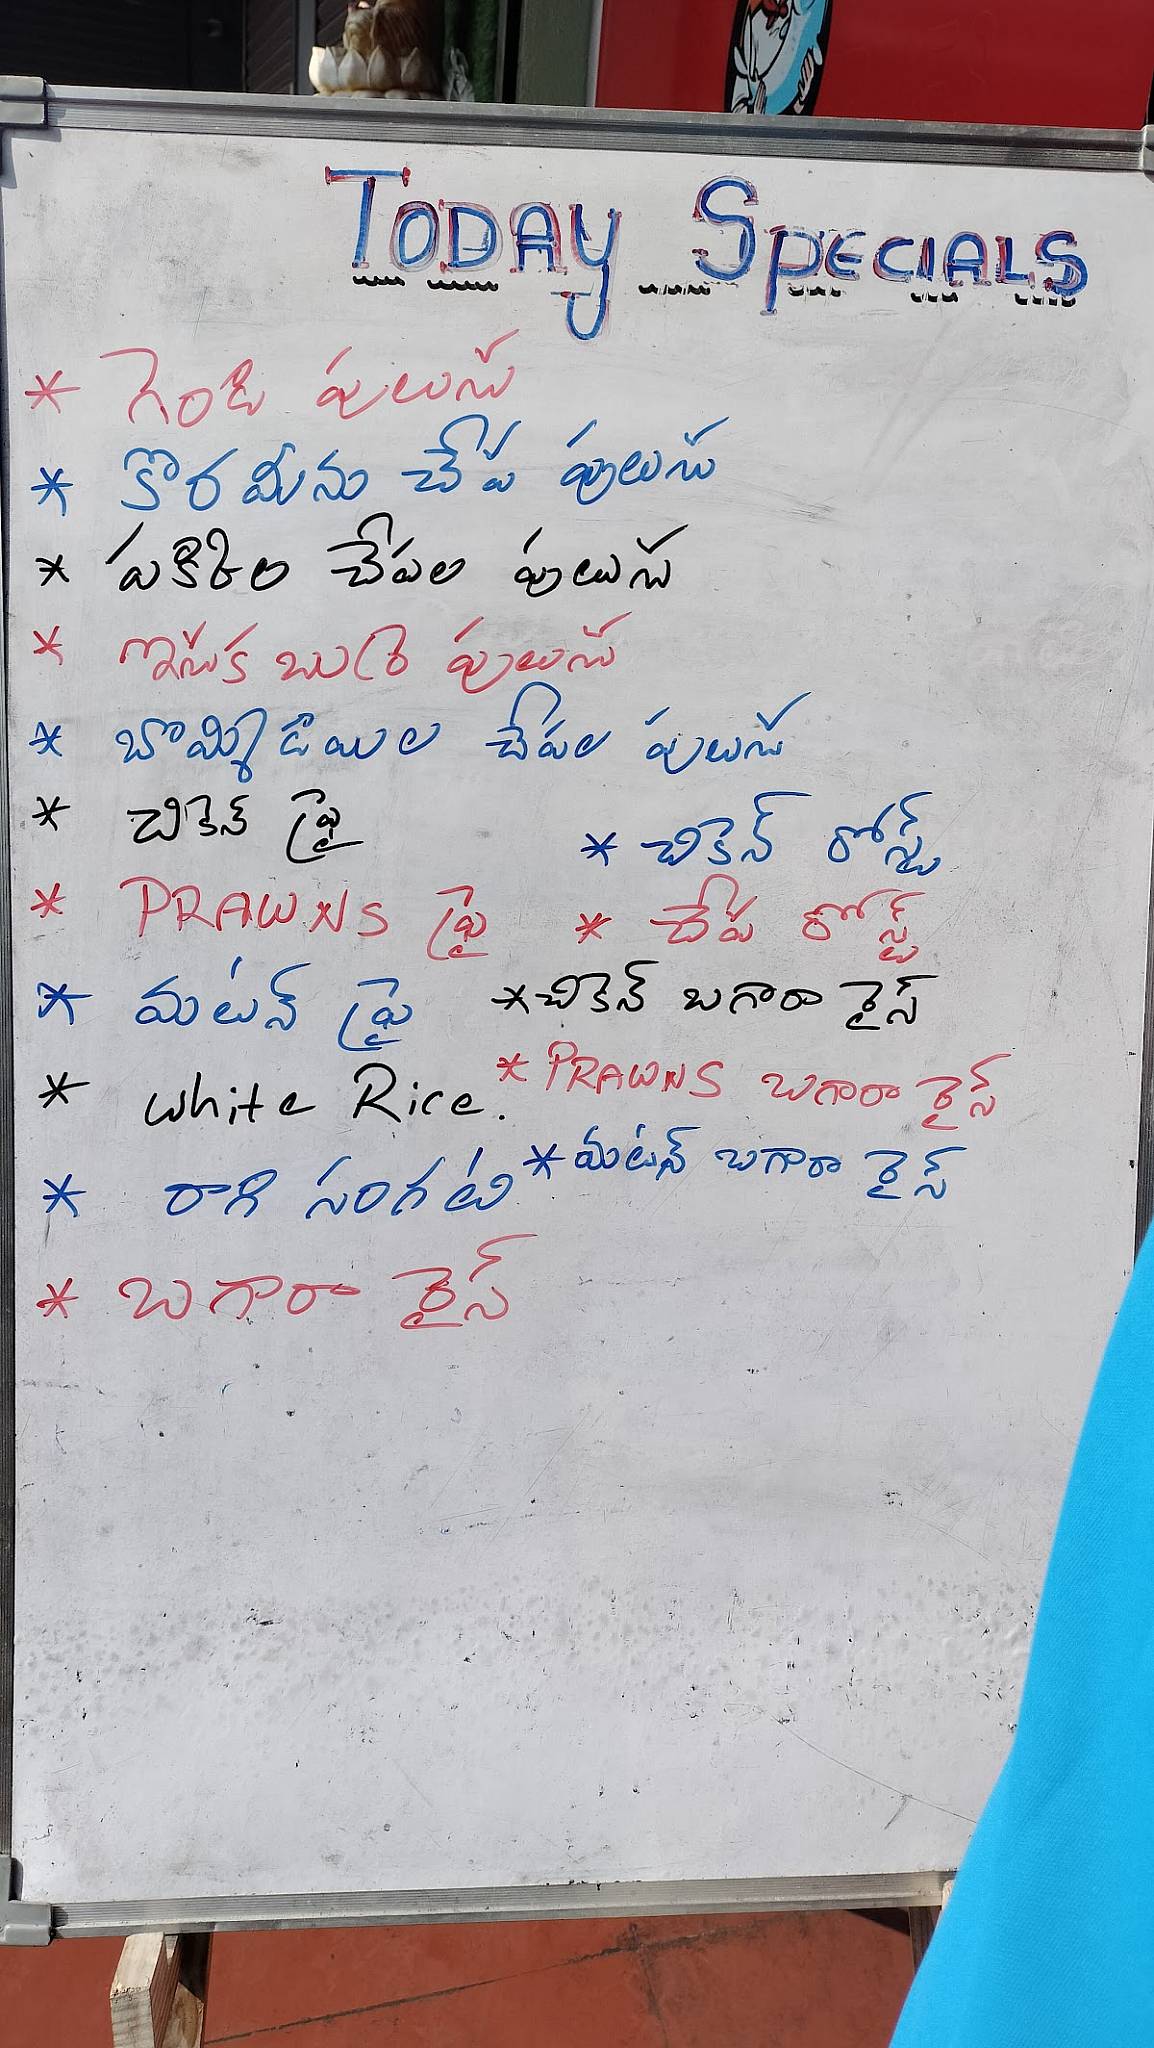 TODAY SPECIALS
* గెండి పులుసు
* కొరమీను చేప పులుసు
* పకిరిల చేపల పులుసు
* ఇసుక బుర్ర పులుసు
* బొమ్మిడియిల చేపల పులుసు
* చికెన్ ఫ్రై
* చికెన్ రోస్ట్
* PRAWNS ఫ్రై * చేప రోస్ట్
* మటన్ ఫ్రై * చికెన్ బగారా రైస్
* White Rice. * PRAWNS బగారా రైస్
* రాగి సంగటి * మటన్ బగారా రైస్
* బగారా రైస్